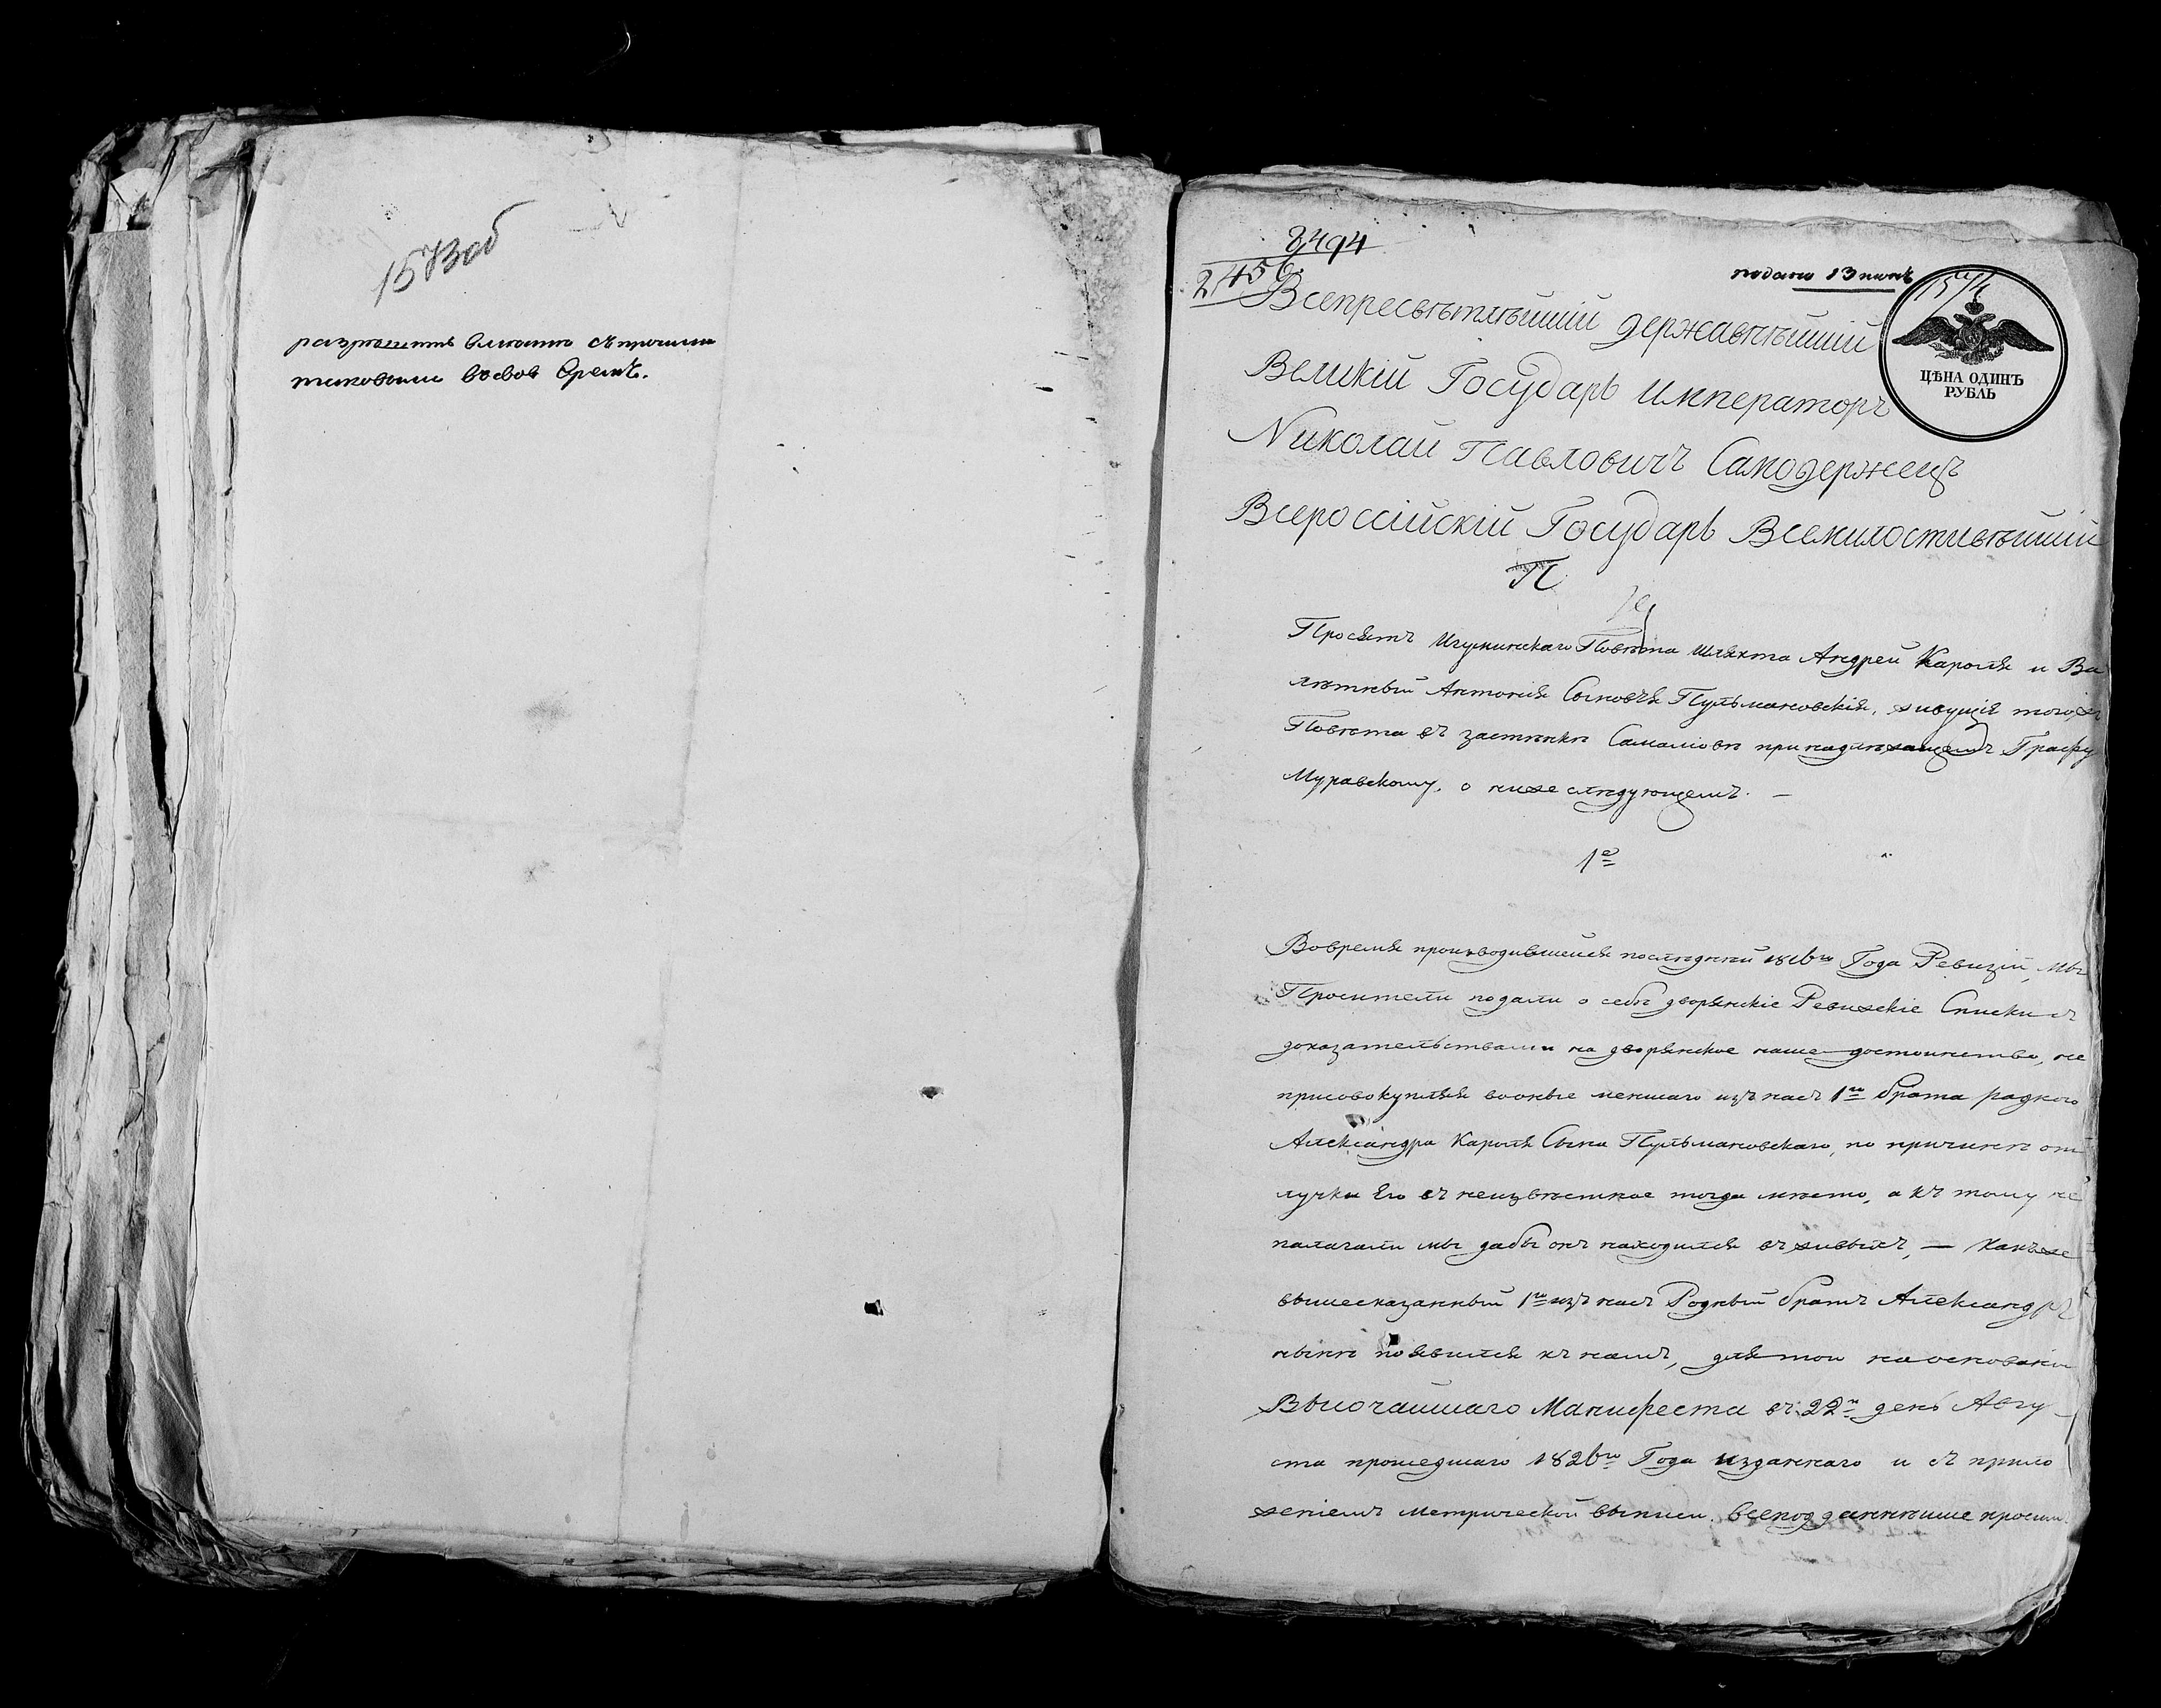 1573об
разрешить вместе съ прочими
таковыми въ свое время.
8494
2456
подано 13 июнѣ
1574
ЦѢНА ОДИНЪ
РУБЛЬ
Всепресвѣтлѣйшій державнѣйшій
Великій Государь Императоръ
Николай Павловичъ Самодержецъ
Всероссійскій Государь Всемилостивѣйшій
П
Просятъ Игуминскаго Повѣта Шляхта Андрей Кароля и Ва
лѣтный Антонія Сыновья Пульмановскія, живущія тогожъ
Повѣта въ застѣнкѣ принадлежащемъ Графу
Муравскому, о нижеслѣдующемъ. —
1е
Вовремя производившейся послѣдней 1816го Года Ревизіи, мы
Просители подали о себѣ дворянскіе Ревизскіе Списки съ
доказательствами на дворянское наше достоинство, не
присовокупляя вооные меншаго изъ насъ 1го брата роднаго
Александра Кароля Сына Пульмановскаго, по причинѣ от
лучки Его въ неизвѣстное тогда мѣсто, а къ тому не
палагали мы дабы онъ находился въ живыхъ, — какъже
вышесказанный 1го изъ насъ Родный братъ Александръ
нынѣ появился къ намъ, для того на основаніи
Высочайшаго Манифеста въ 22й день Авгу-
ста прошедшаго 1826го Года изданнаго и съ прило
женіемъ метрической выписи. всеподданнѣише просим.